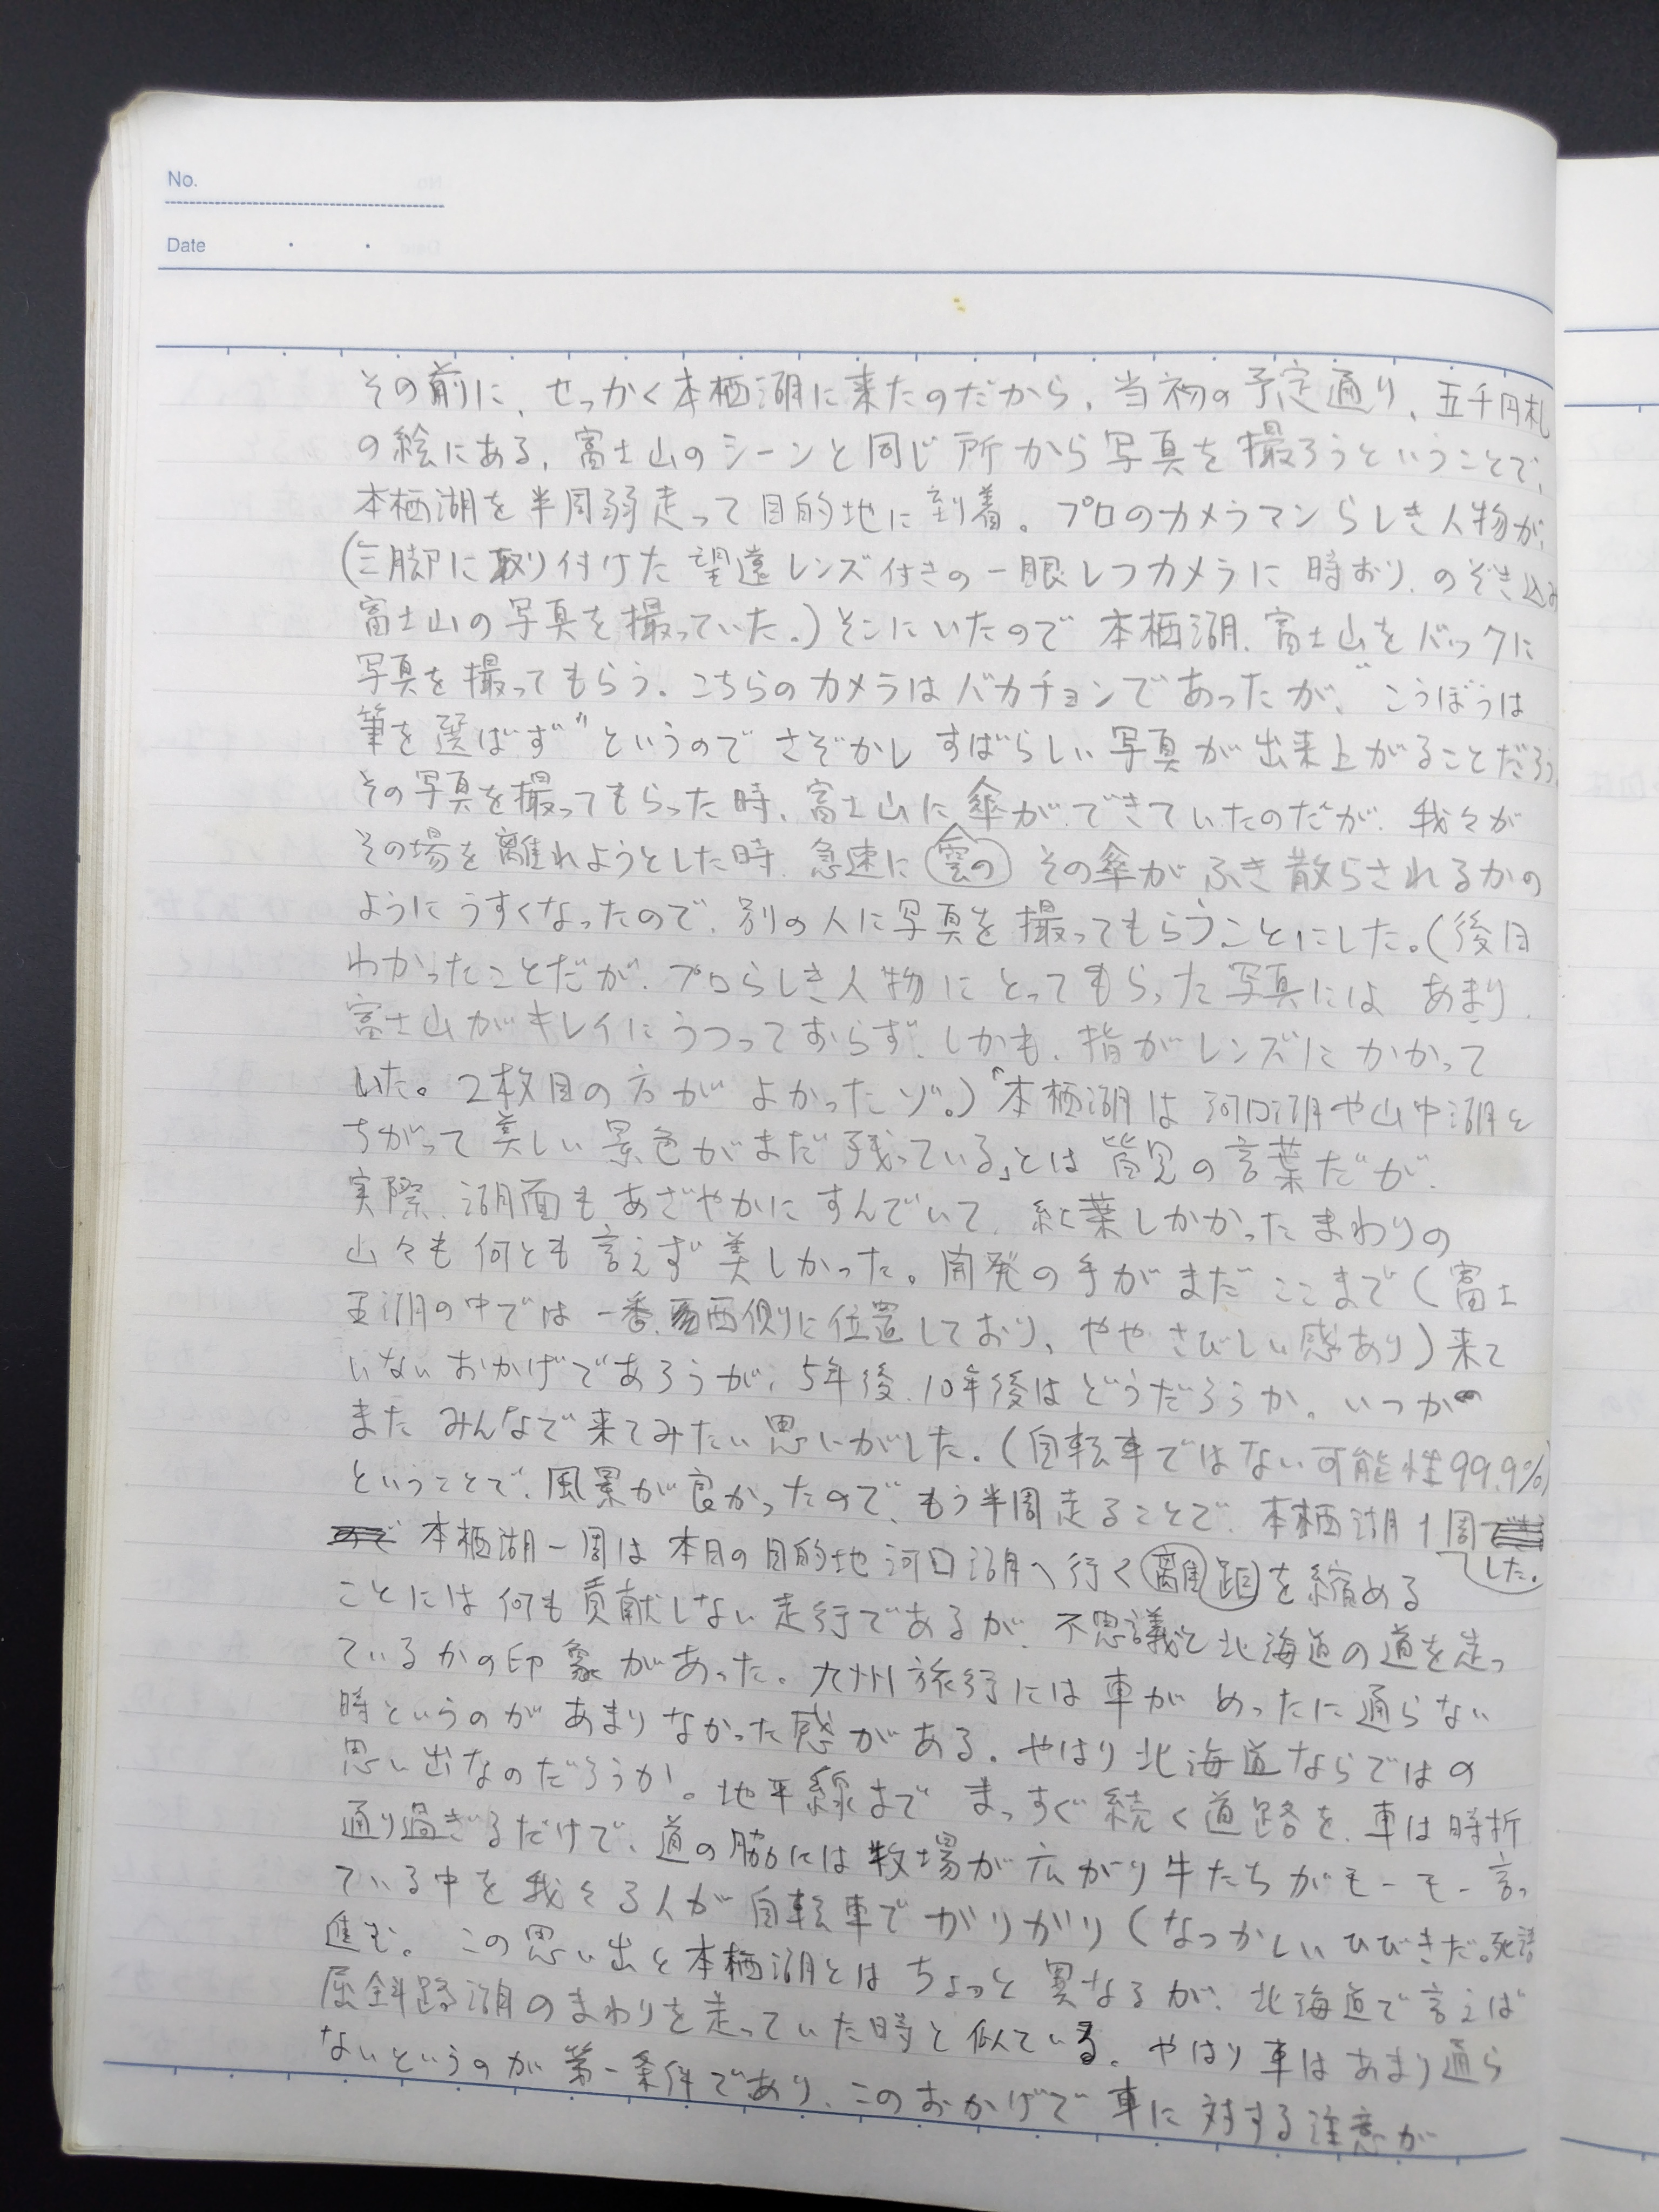 No.
Date
その前に、せっかく本栖湖に来たのだから、当初の予定通り、五千円札
の絵にある、富士山のシーンと同じ所から写真を撮ろうということで、
本栖湖を半周弱走って目的地に到着。プロのカメラマンらしき人物が、
(三脚に取り付けた望遠レンズ付きの一眼レフカメラに時おり、のぞき込み
富士山の写真を撮っていた。)そこにいたので本栖湖、富士山をバックに
写真を撮ってもらう。こちらのカメラはバカチョンであったが、“こうぼうは
筆を選ばず”というのでさぞかしすばらしい写真が出来上がることだろう。
その写真を撮ってもらった時、富士山に傘ができていたのだが、我々が
その場を離れようとした時、急速に雲のその傘がふき散らされるかの
ようにうすくなったので、別の人に写真を撮ってもらうことにした。(後日
わかったことだが、プロらしき人物にとってもらった写真にはあまり
富士山がキレイにうつっておらず、しかも、指がレンズにかかって
いた。2枚目の方がよかったゾ。)「本栖湖は河口湖や山中湖と
ちがって美しい景色がまだ残っている」とは皆見の言葉だが、
実際、湖面もあざやかにすんでいて、紅葉しかかったまわりの
山々も何とも言えず美しかった。開発の手がまだここまで(富士
五湖の中では一番西側に位置しており、ややさびしい感あり)来て
いないおかげであろうが、5年後、10年後はどうだろうか。いつか
またみんなで来てみたい思いがした。(自転車ではない可能性99.9%)
ということで、風景が良かったので、もう半周走ることで、本栖湖1周した。
本栖湖一周は本日の目的地河口湖へ行く離距を縮める
ことには何も貢献しない走行であるが、不思議と北海道の道を走っ
ているかの印象があった。九州旅行には車がめったに通らない
時というのがあまりなかった感がある。やはり北海道ならではの
思い出なのだろうか。地平線までまっすぐ続く道路を、車は時折
通り過ぎるだけで、道の脇には牧場が広がり牛たちがモーモー言っ
ている中を我々3人が自転車でガリガリ(なつかしいひびきだ。死語
進む。この思い出と本栖湖とはちょっと異なるが、北海道で言えば
屈斜路湖のまわりを走っていた時と似ている。やはり車はあまり通ら
ないというのが第一条件であり、このおかげで車に対する注意が